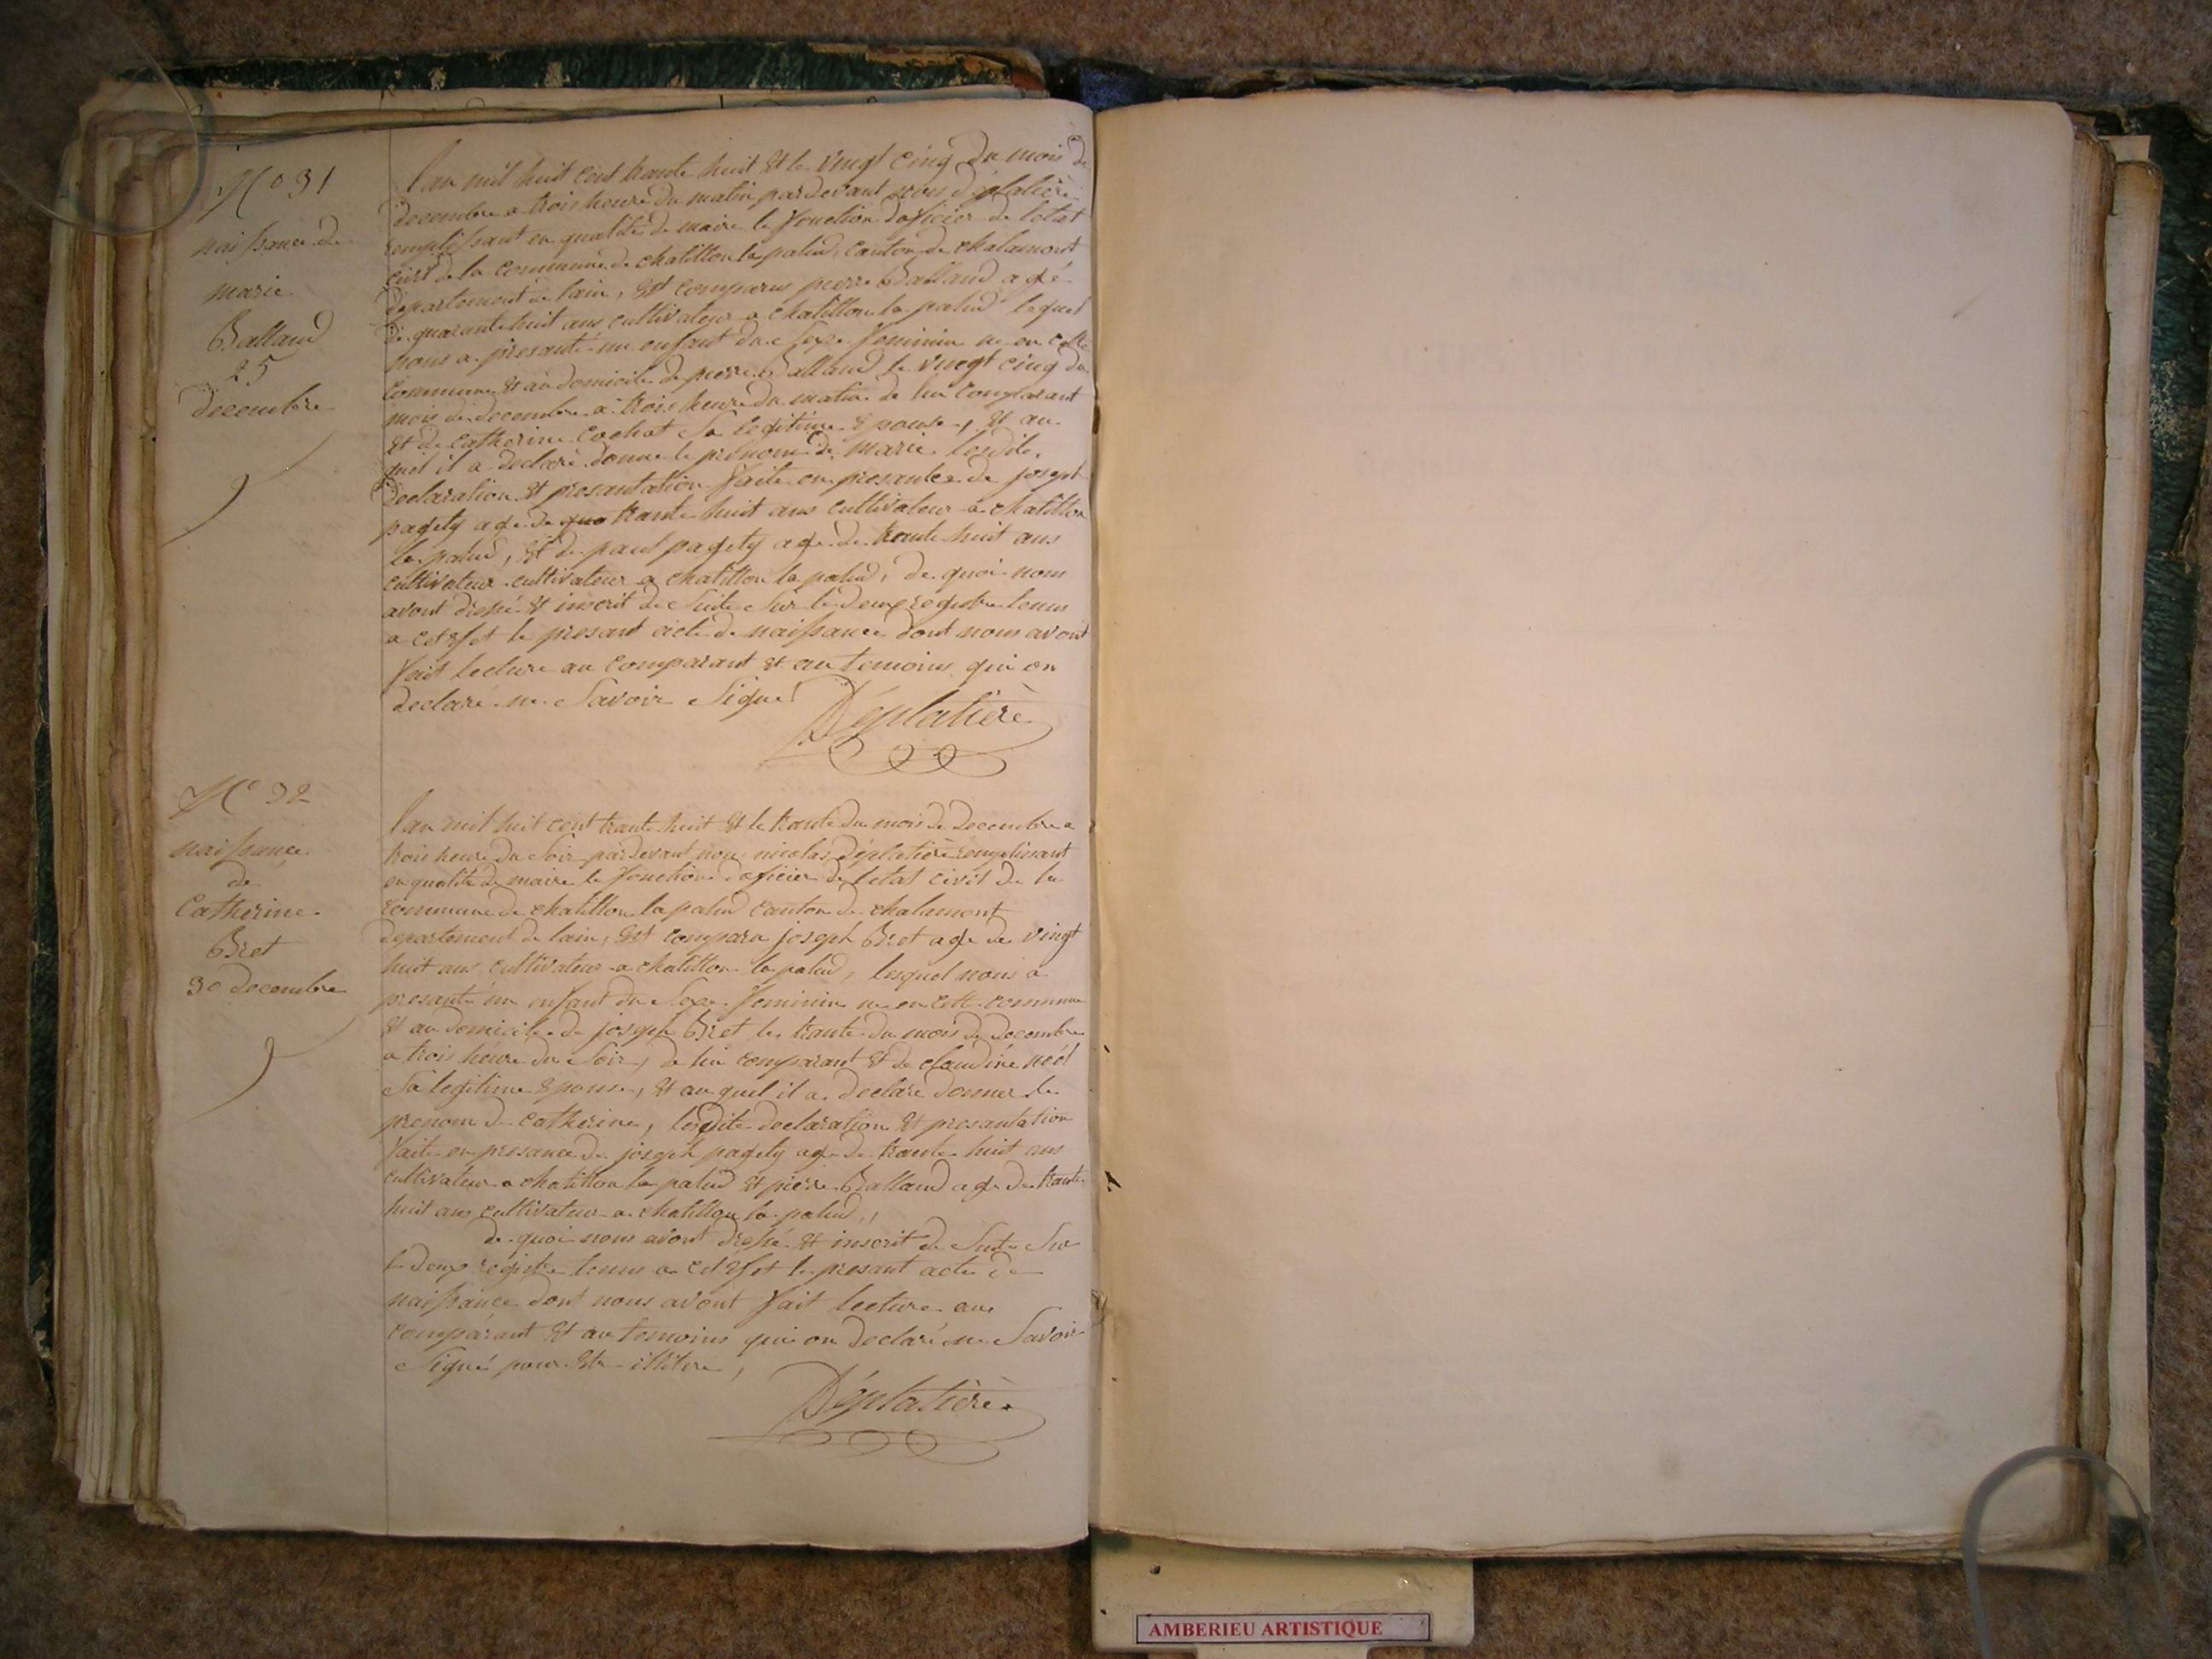 N° 31
naissance de
marie
Balland
25
decembre
lan mil huit cent trante huit et le vingt cinq du mois de
decembre a trois heure du matin pardevant nous déplatière
remplissant en qualité de maire le fonction doficier de letat
civil de la commune de chatillon la palud, canton de chalamont
departement de lain, est comparus pierre Balland agé
de quarante huit ans cultivateur a chatillon la palud lequel
nous a presanté un enfant du sexe feminin ne en cette
commune et au domicile de pierre Balland le vingt cinq du
mois de decembre a trois heure du matin de lui comparant
et de catherine cochat sa legitime epouse, et au
quel il a declaré donne le prenom de marie lesdite
declaration et presantation faite en presantce de joseph
pagety age de qua trante huit ans cultivateur a chatillon
la palud, et de paul pagety age de trante huit ans
cultivateur cultivateur a chatillon la palud, de quoi nous
avont dressé et inscrit de suite sur le deux registre tenus
a cet efet le presant acte de naissance dont nous avont
fait lecture au comparant et au temoins qui on
declaré ne savoir signé
Déplatière
N° 32
naissance
de
Catherine
Bret
30 decembre
lan mil huit cent trante huit et le trante du mois de decembre a
trois heure du soir pardevant nous nicolas déplatière remplissant
en qualité de maire le fonction doficier de letat civil de la
commune de chatillon la palud canton de chalamont
departement de lain, est comparu joseph Bret age de vingt
huit ans cultivateur a chatillon la palud, lequel nous a
presanté un enfant du sexe feminin ne en cette commune
et au domicile de joseph Bret le trante du mois de decembre
a trois heure du soir, de lui comparant et de claudine noël
sa legitime epouse, et au quel il a declare donner le
prenom de catherine, lesdite declaration et presantation
faite en presance de joseph pagety age de trante huit ans
cultivateur a chatillon la palud et pierre Balland age de trante
huit ans cultivateur a chatillon la palud,,
de quoi nous avont dressé et inscrit de suite sur
le deux registre tenus a cet efet le presant acte de
naissance dont nous avont fait lecture au
comparant et au temoins qui on declaré ne savoir
signé pour etre illitere,
Déplatière
AMBERIEU ARTISTIQUE